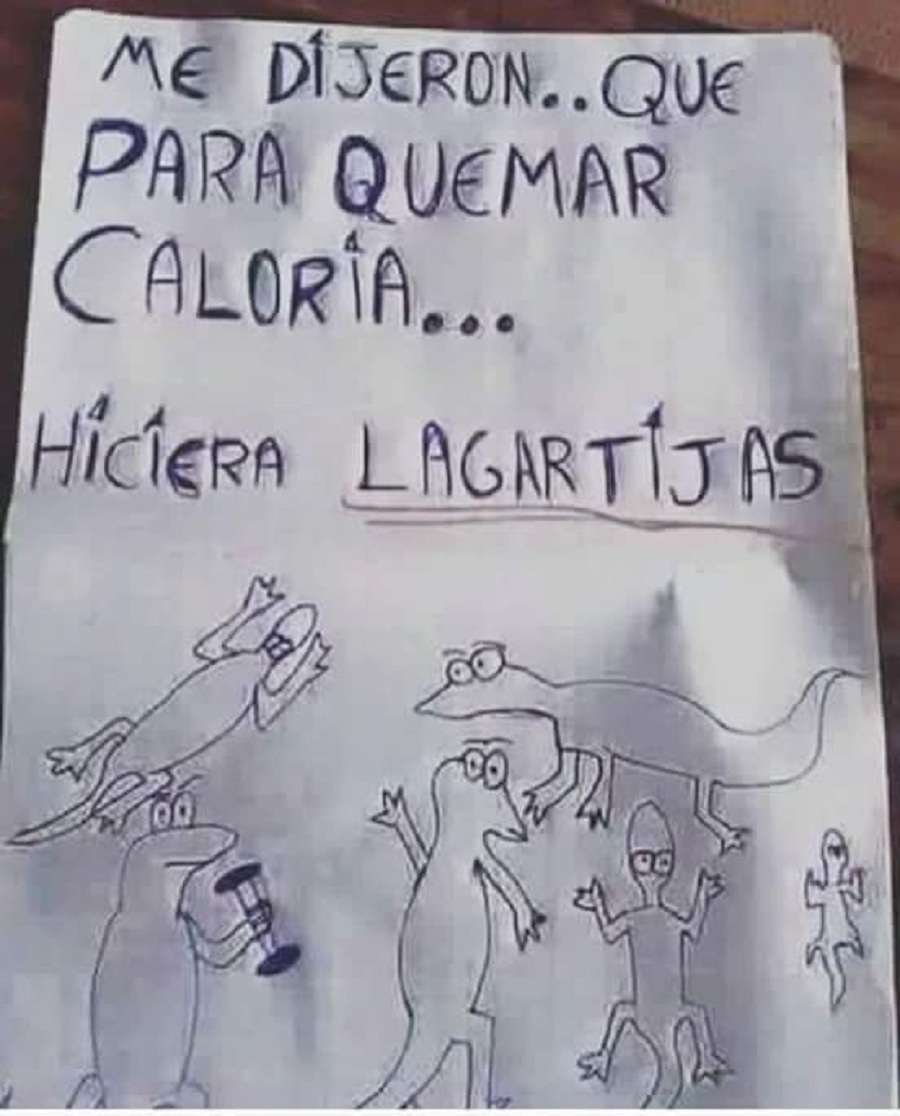 ME DIJERON..QUE
PARA QUEMAR
CALORÍA...
HICIERA LAGARTIJAS